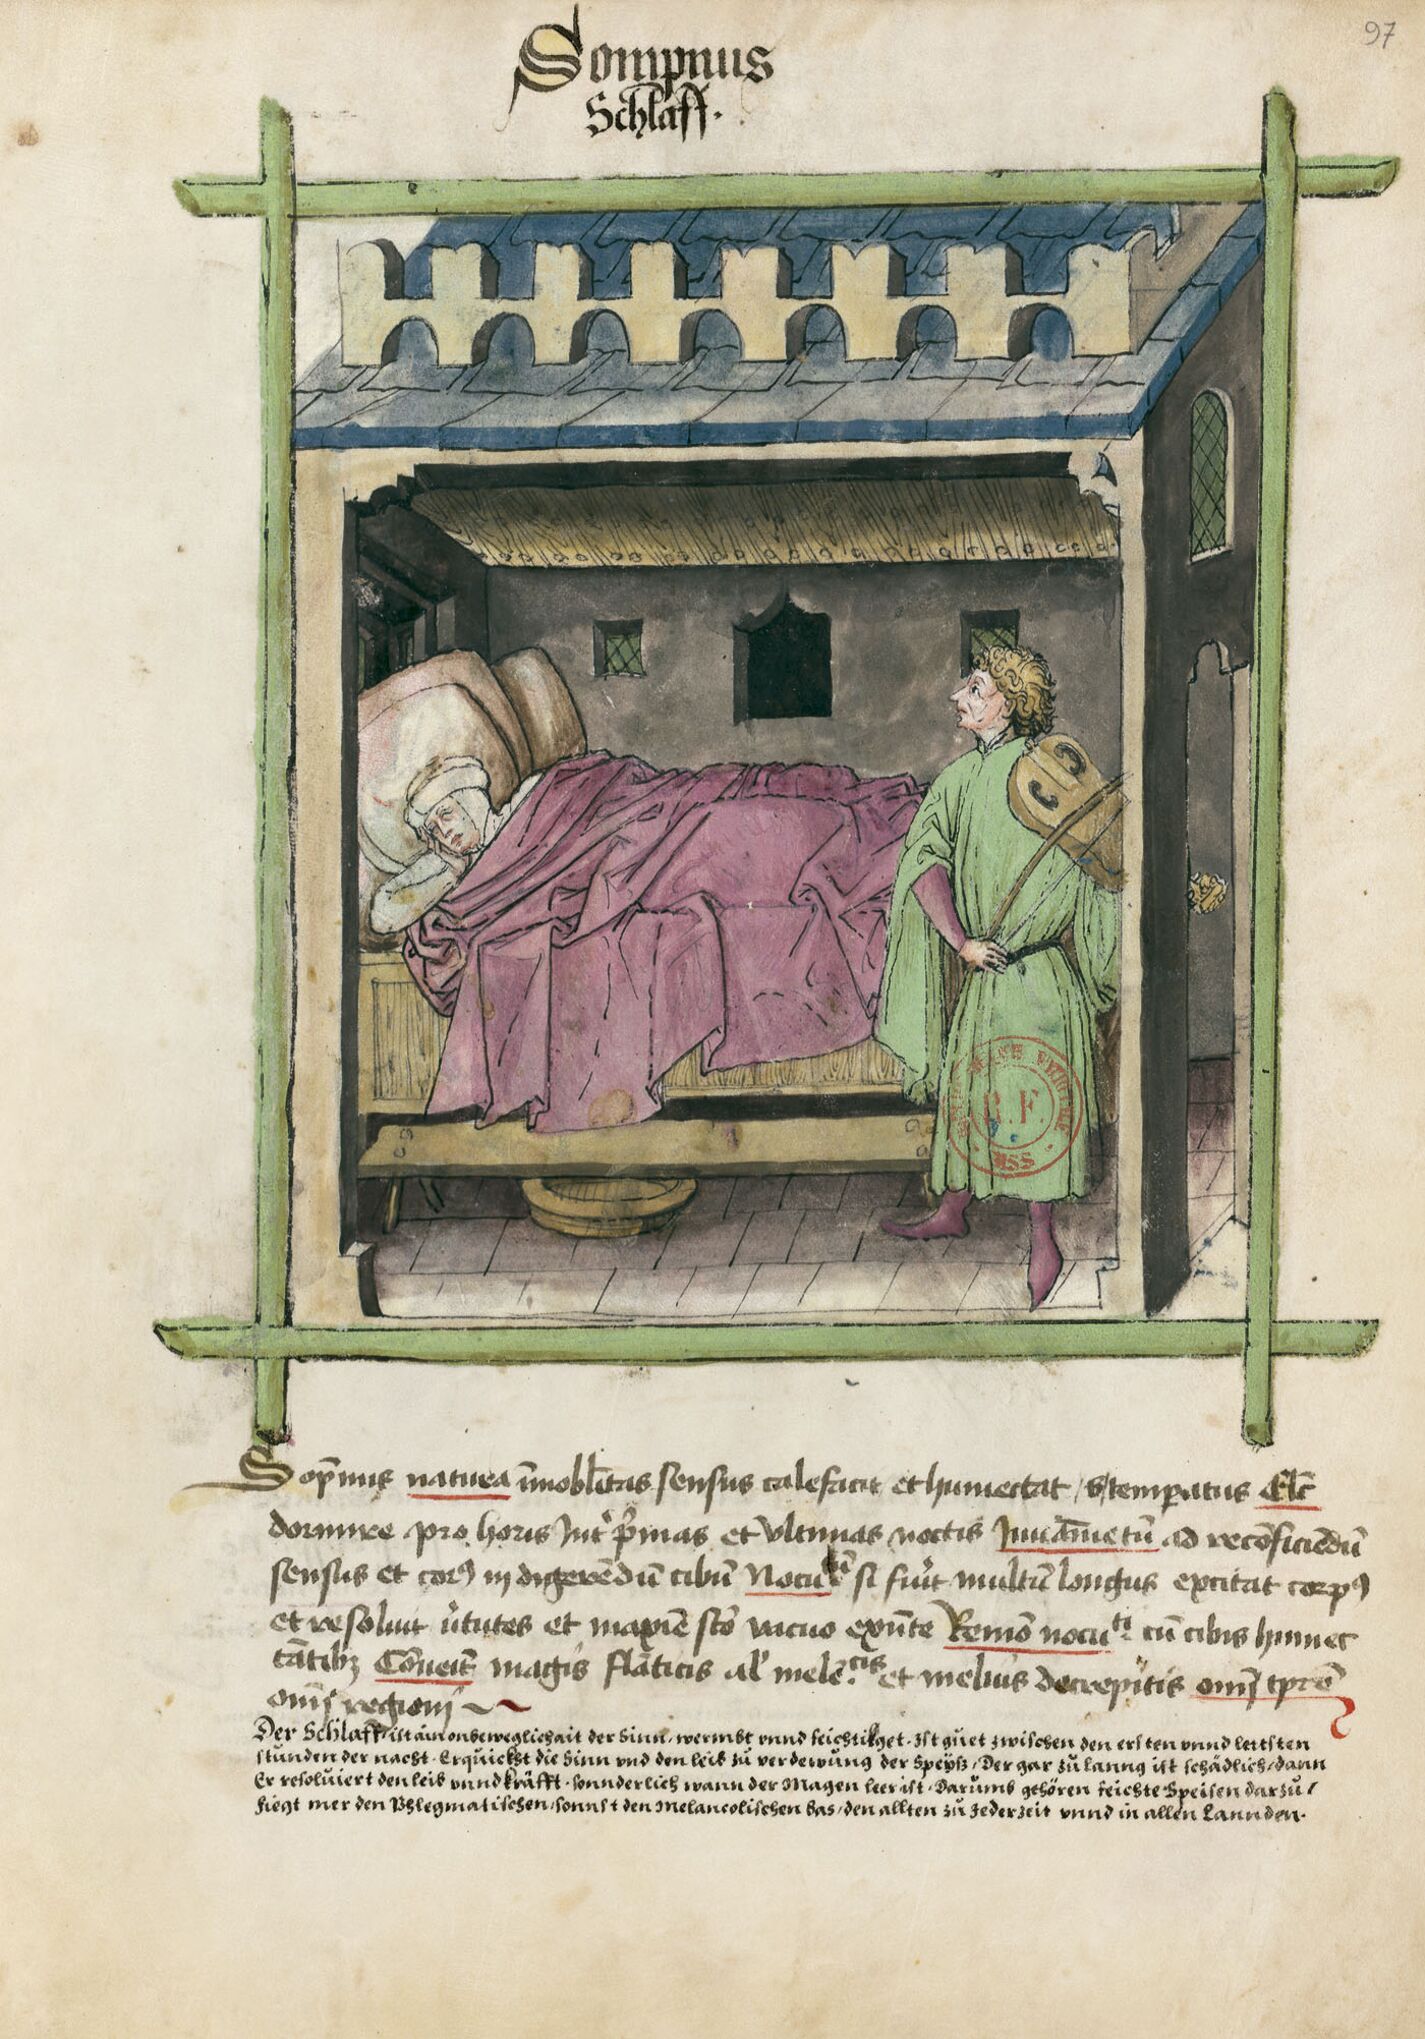 97
Sompnus
Schlaff.
B.F.
MSS
Sop̄nus natura īmobl̄itas sensus calefacit et humectat / vꝰ temperatus Elc̄
dormire pro horis Int̉ p̉mas et vltimas noctis Iuuām̄etū ad recōficiēdū
sensus et corꝯ in digerēdū cibū Nocu si fuit̉ multū longus excitat corpꝯ
et resoluit v̉tutes et maxīe sto vacuo exn̄te Remō nocu cū cibis humec
tātibꝫ Cōueit̄ magis flāticis al' melēcis et melius decrepitis om̄i tp̄re
om̄i regioni
Der Schlaff / ist ain onbeweglichait der Sinn / wermbt vnnd feichtikget. Ist guet zwischen den ersten vnnd letsten
stunden der nacht. Erquickht die Sinn vnd den leib zu verdewung der Speysz / Der gar zu lanng ist schädlich / dann
Er resoluiert den leib vnnd kräfft. sonnderlich wann der Magen leer ist. Darumb gehören feichte Speisen darzu /
fiegt mer den Phlegmatischen / sonnst den Melancolischen bas / den allten zu Jederzeit vnnd in allen Lannden.